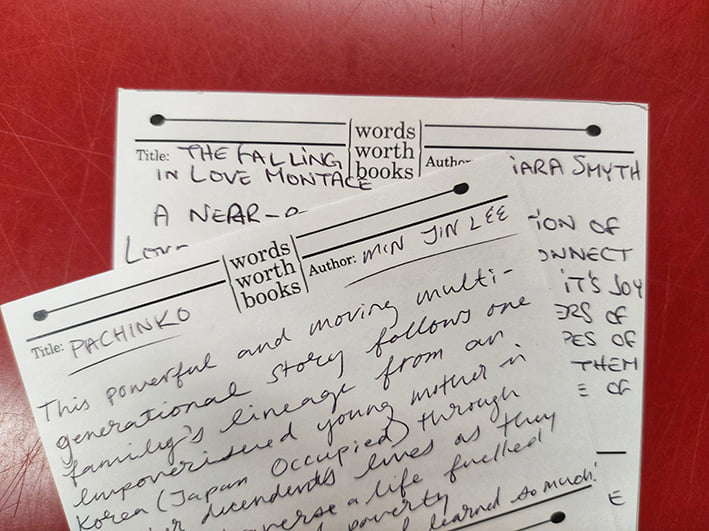 words
worth
books
Title: THE FALLING
IN LOVE MONTAGE
IARA SMYTH
A NEAR-
ION OF
ONNECT
IT'S JOY
ERS OF
PES OF
THEM
E OF
E
words
worth
books
Title: PACHINKO
Author: MIN JIN LEE
This powerful and moving multi-
generational story follows one
family's lineage from an
impoverished young mother in
Korea (Japan Occupied) through
her decendents lives as they
a life fuelled
poverty
learned so much!